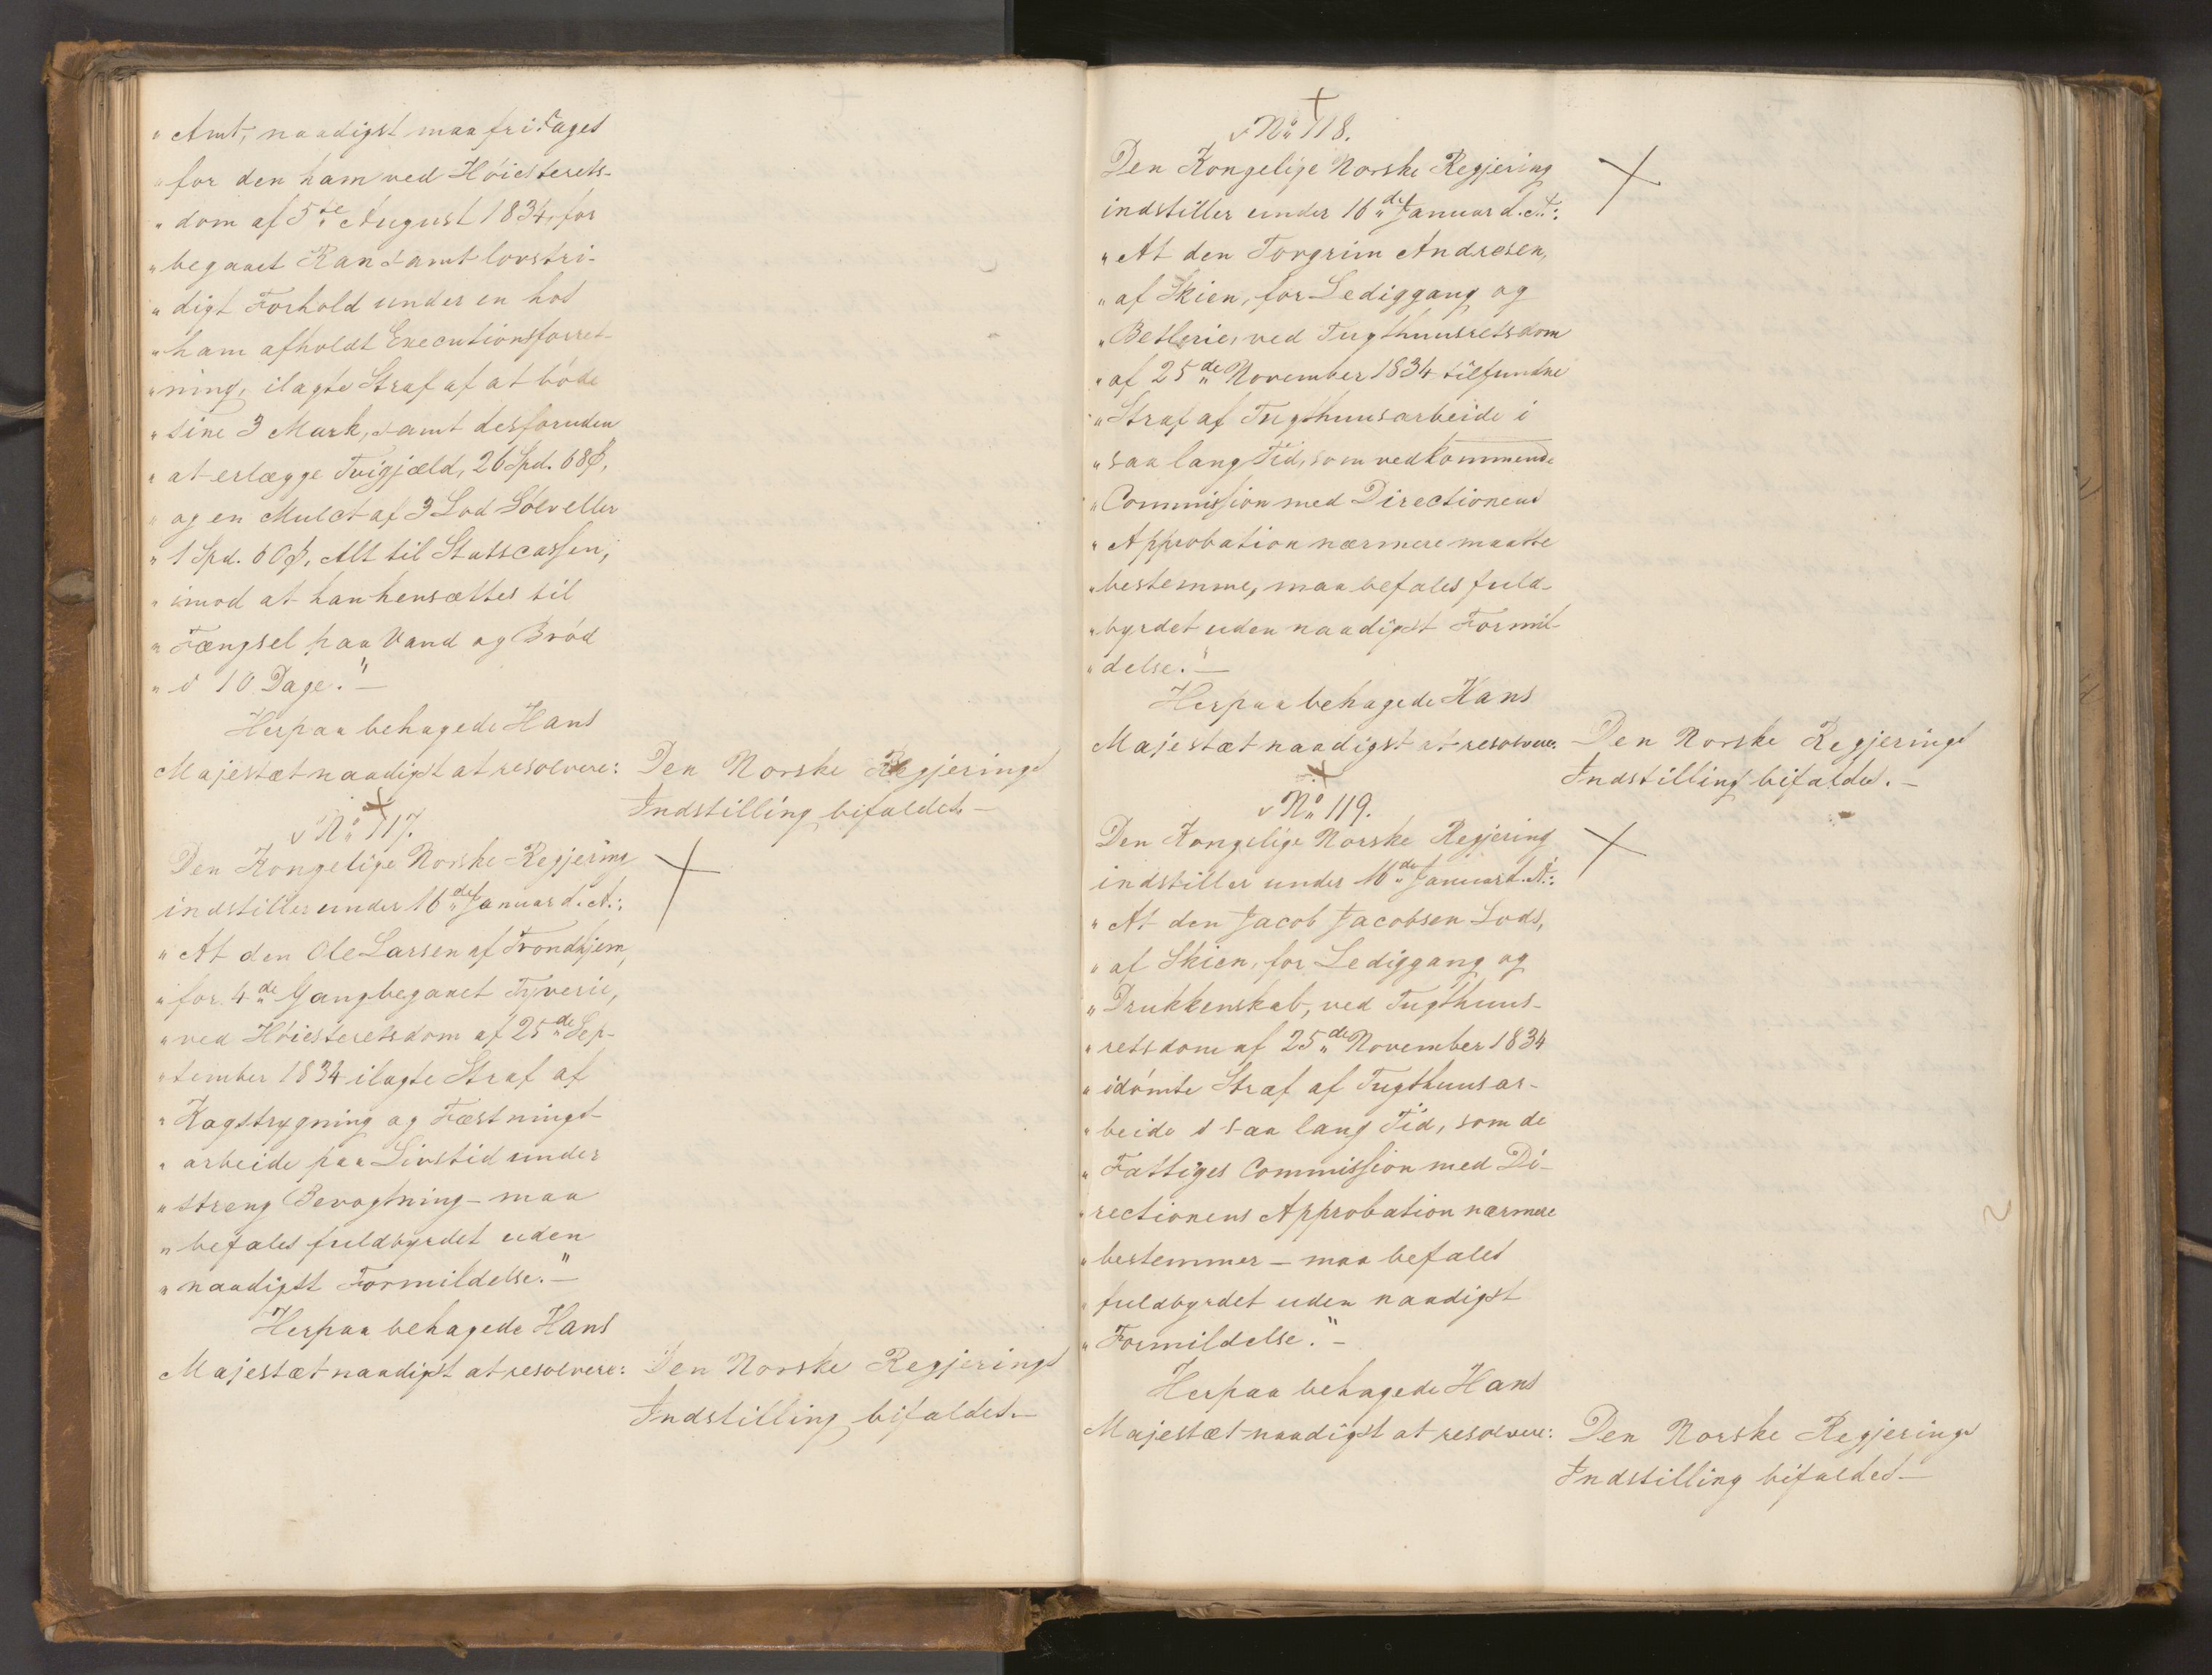 " Amt, naadigst maa fritages
" for den ham ved Höiesterets-
" dom af 5te August 1834, for
" begaaet Ran samt lovstri-
" digt Forhold under en hos
" ham afholdt Executionsforret-
" ning, ilagte Straf af at böde
" sine 3 Mark, samt desforuden
" at erlægge Tvigjæld, 26 Spd. 68 ß,
" og en Mulct af 3 Lod Sölv eller
" 1 Spd. 60 ß, Alt til Statscassen;
" imod at han hensættes til
" Fængsel paa Vand og Bröd
" i 10 Dage."—
Herpaa behagede Hans
Majestæt naadigst at resolvere:
Den Norske Regjerings
Indstilling bifaldes.—
No 117.
Den Kongelige Norske Regjering
indstiller under 16de Januar d. A.:
" At den Ole Larsen af Trondhjem,
" for 4de Gang begaaet Tyverie,
" ved Höiesteretsdom af 25de Sep-
" tember 1834 ilagte Straf af
" Kagstrygning og Fæstnings-
" arbeide paa Livstid under
" streng Bevogtning – maa
" befales fuldbyrdet uden
" naadigst Formildelse."—
Herpaa behagede Hans
Majestæt naadigst at resolvere:
Den Norske Regjerings
Indstilling bifaldes.—
No 118.
Den Kongelige Norske Regjering
indstiller under 16de Januar d. A.:
" At den Torgrim Andresen,
" af Skien, for Lediggang og
" Betlerie, ved Tugthuusretsdom
" af 25de November 1834 tilfundne
" Straf af Tugthuusarbeide i
" saa lang Tid, som vedkommende
" Commission med Directionens
" Approbation nærmere maatte
" bestemme, maa befales fuld-
" byrdet uden naadigst Formil-
" delse."—
Herpaa behagede Hans
Majestæt naadigst at resolvere:
Den Norske Regjerings
Indstilling bifaldes.—
No 119.
Den Kongelige Norske Regjering
indstiller under 16de Januar d. A.:
" At den Jacob Jacobsen Lods,
" af Skien, for Lediggang og
" Drukkenskab, ved Tugthuus-
" retsdom af 25de November 1834
" idömte Straf af Tugthuusar-
" beide i saa lang Tid, som de
" Fattiges Commission med Di-
" rectionens Approbation nærmere
" bestemmer – maa befales
" fuldbyrdet uden naadigst
" Formildelse."—
Herpaa behagede Hans
Majestæt naadigst at resolvere:
Den Norske Regjerings
Indstilling bifaldes—